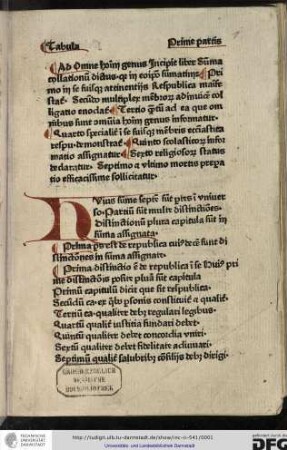 Tabula Prime partis
¶Ad Omne hoīm genus Incipit liber Sūma
collationū dictus· qr in corpore sumatim ¶Pri
mo in se suisqȝ attinentijs Respublica manife
stat᷑ Secūdo multiplex mēbrorū adinuicē col
ligatio enodat᷑ ¶Tertio qtū ad ea que om
nibus sunt omnia hoīm genus informatur
¶Quarto specialiter in se suisqȝ mēbris ecclāstica
resp· demōstrat᷑ ¶Quinto scolasticorū infor
matio assignatur ¶Sexto religiosorū status
declaratur· Septimo a vltimo mortis prepa
ratio efficacissime sollicitatur·
HVius sūme septē sūt ptes in vniuer
so· Partiū sūt multe distinctiōes
distinctionū plura capitula sūt in
sūma assignata·
¶Prima ps est de republica cuiꝰ decē sunt di
stinctōnes in sūma assignate·
¶Prima distinctio ē de republica in se Huiꝰ pri
me distinctōis posite plura sūt capitula
Primū capitulū dicit que sit respublica·
Secūdū ex qbꝫ psonis constituit᷑ a qualit᷑·
Terciū qualiter debet regulari legibus·
Quartū qualit᷑ iusticia fundari debet·
Quintū qualiter debet concordia vniri·
Sextū qualiter debet fidelitate adiuuari·
Septimū qualit᷑ salubribꝫ cōsilijs debet dirigi·
http://tudigit.ulb.tu-darmstadt.de/show/inc-iii-54/0001
Universitäts- und Landesbibliothek Darmstadt
DFG